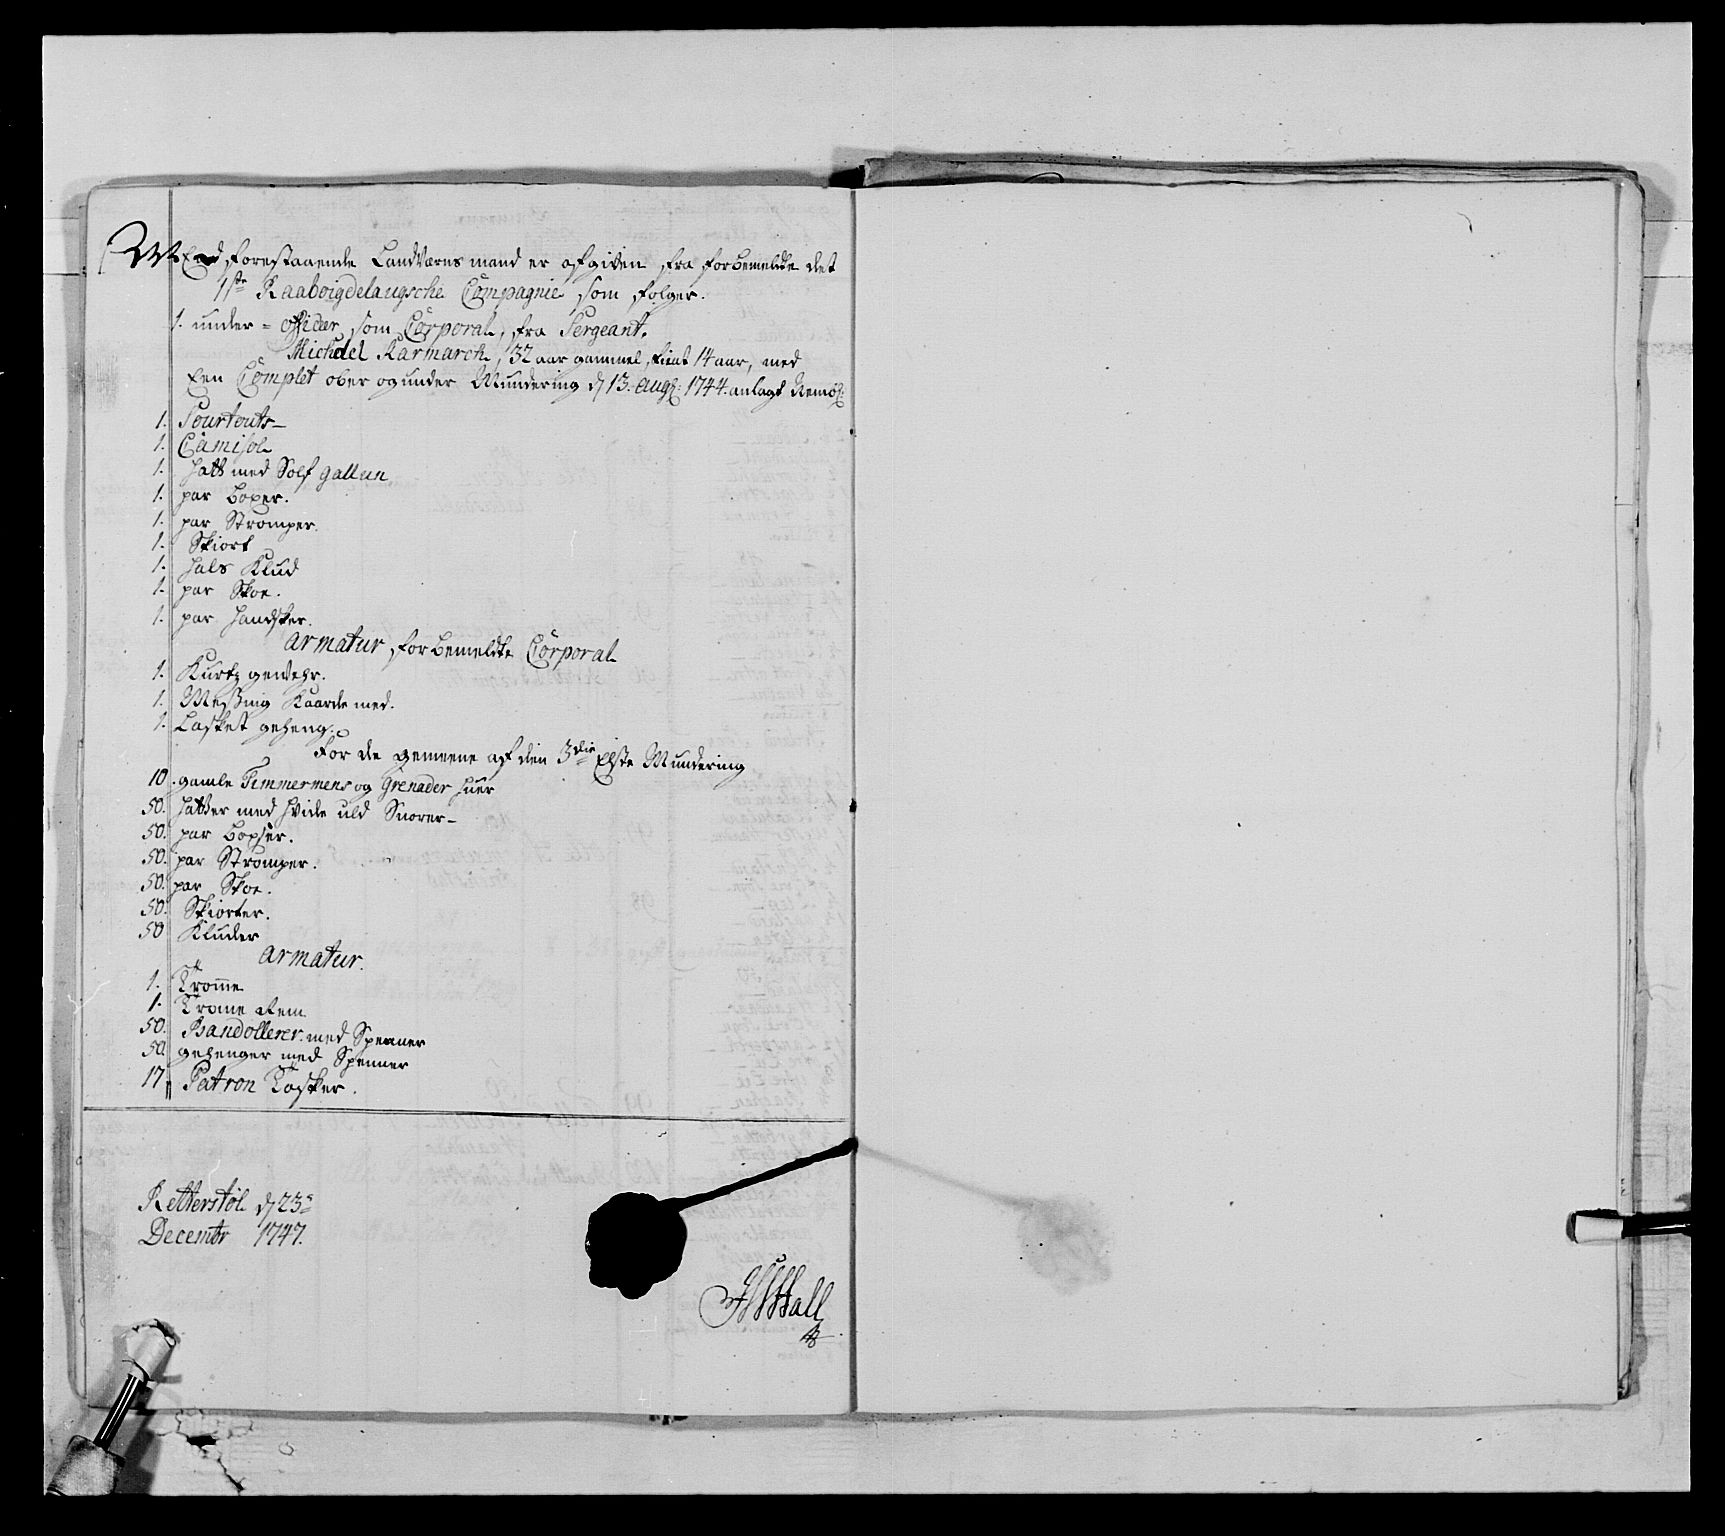 Med forestaaende Landværns mand er afgiven fra forbemeldte det
1ste Raaboigdelaugsche Compagnie som folger.
1. under-officeer som Corporal, fra Sergeant.
Michael Karmarck, 32 aar gammel, tient 14 aar, med
Een Complet ober og under Mundering d 13. Aug: 1744. anlagt
1. Sourtouts
1. Camisol
1. Hatt med Solf gallun
1. par boxer.
1. par Strømper.
1. Skiort
1. Hals Klud
1. par Skoe.
1. par Handsker.
Armatur forbemeldte Corporal
1. Kurtz gewehr.
1. Messing Kaarde med.
1. Lasket geheng.
For de gemeene af den 3die Elste Mundering
10. gamle Timmermens og Grenader huer
50. Hatter med Hvide uld Snorer
50. par boxser.
50. par Strømper.
50. par Skoe.
50. Skiorter.
50 Kluder
Armatur.
1. Tromme
1. Trome Rem
50. Bandollerer med Spenner
50 gehenger med Spenner
17 Patron Tasker.
Retterstøl d 23
Decembr 1747.
Hall